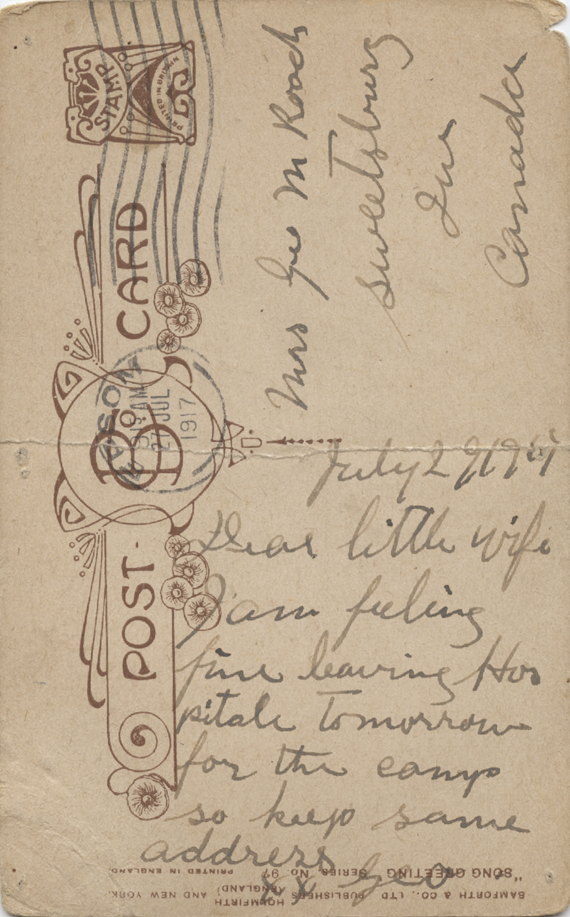 STAMP
PRINTED IN BRITAIN
POST CARD
27 JUL
1917
Mrs Geo M Roach
Sweetsburg
Que
Canada
Dear little wife
I am feeling
fine leaving Hos
pitale tomorrow
for the camp
so keep same
address
xx Geo
BAMFORTH & CO., LTD., PUBLISHERS
HOLMFIRTH
(ENGLAND)
AND NEW YORK.
"SONG GREETING" SERIES, No.
PRINTED IN ENGLAND.